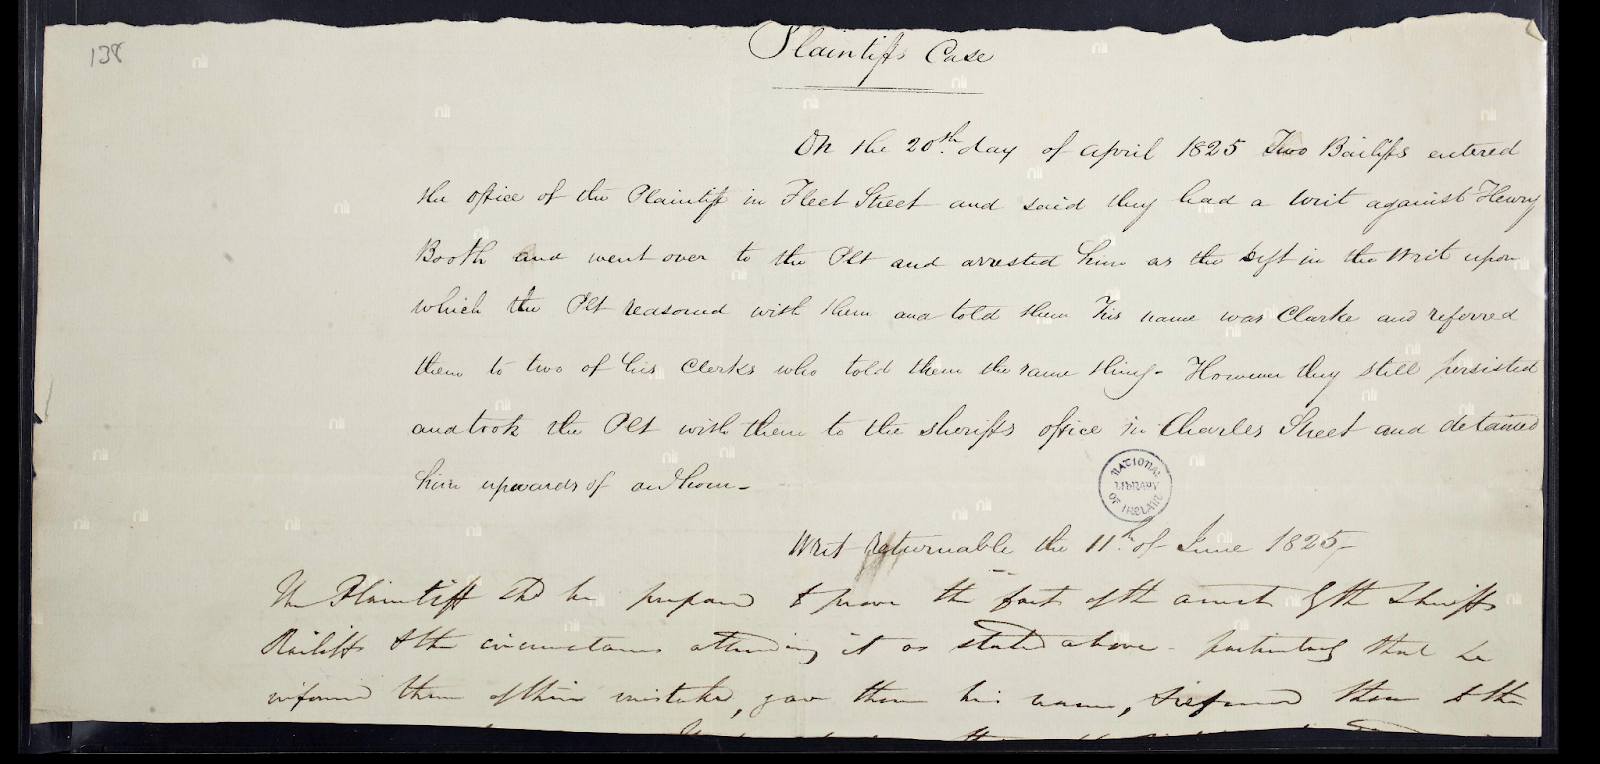 138
Plaintiffs Case
On the 20th day of april 1825 Two Bailiffs entered
the office of the Plaintiff in Fleet Street and said they had a Writ against Henry
Booth and went over to the Plt and arrested him as the Deft in the Writ upon
which the Plt reasoned with them and told them his name was Clarke and referred
them to two of his Clerks who told them the same thing - However they still persisted
and took the Plt with them to the sheriffs office in Charles Street and detained
him upwards of an hour -
NATIONAL LIBRARY OF IRELAND
Writ Returnable the 11th of June 1825 -
The Plaintiff shd be prepared to prove the fact of the arrest by the Sheriffs
Bailiffs & the circumstances attending it as stated above - particularly that he
informed them of their mistake, gave them his name, & referred them to the